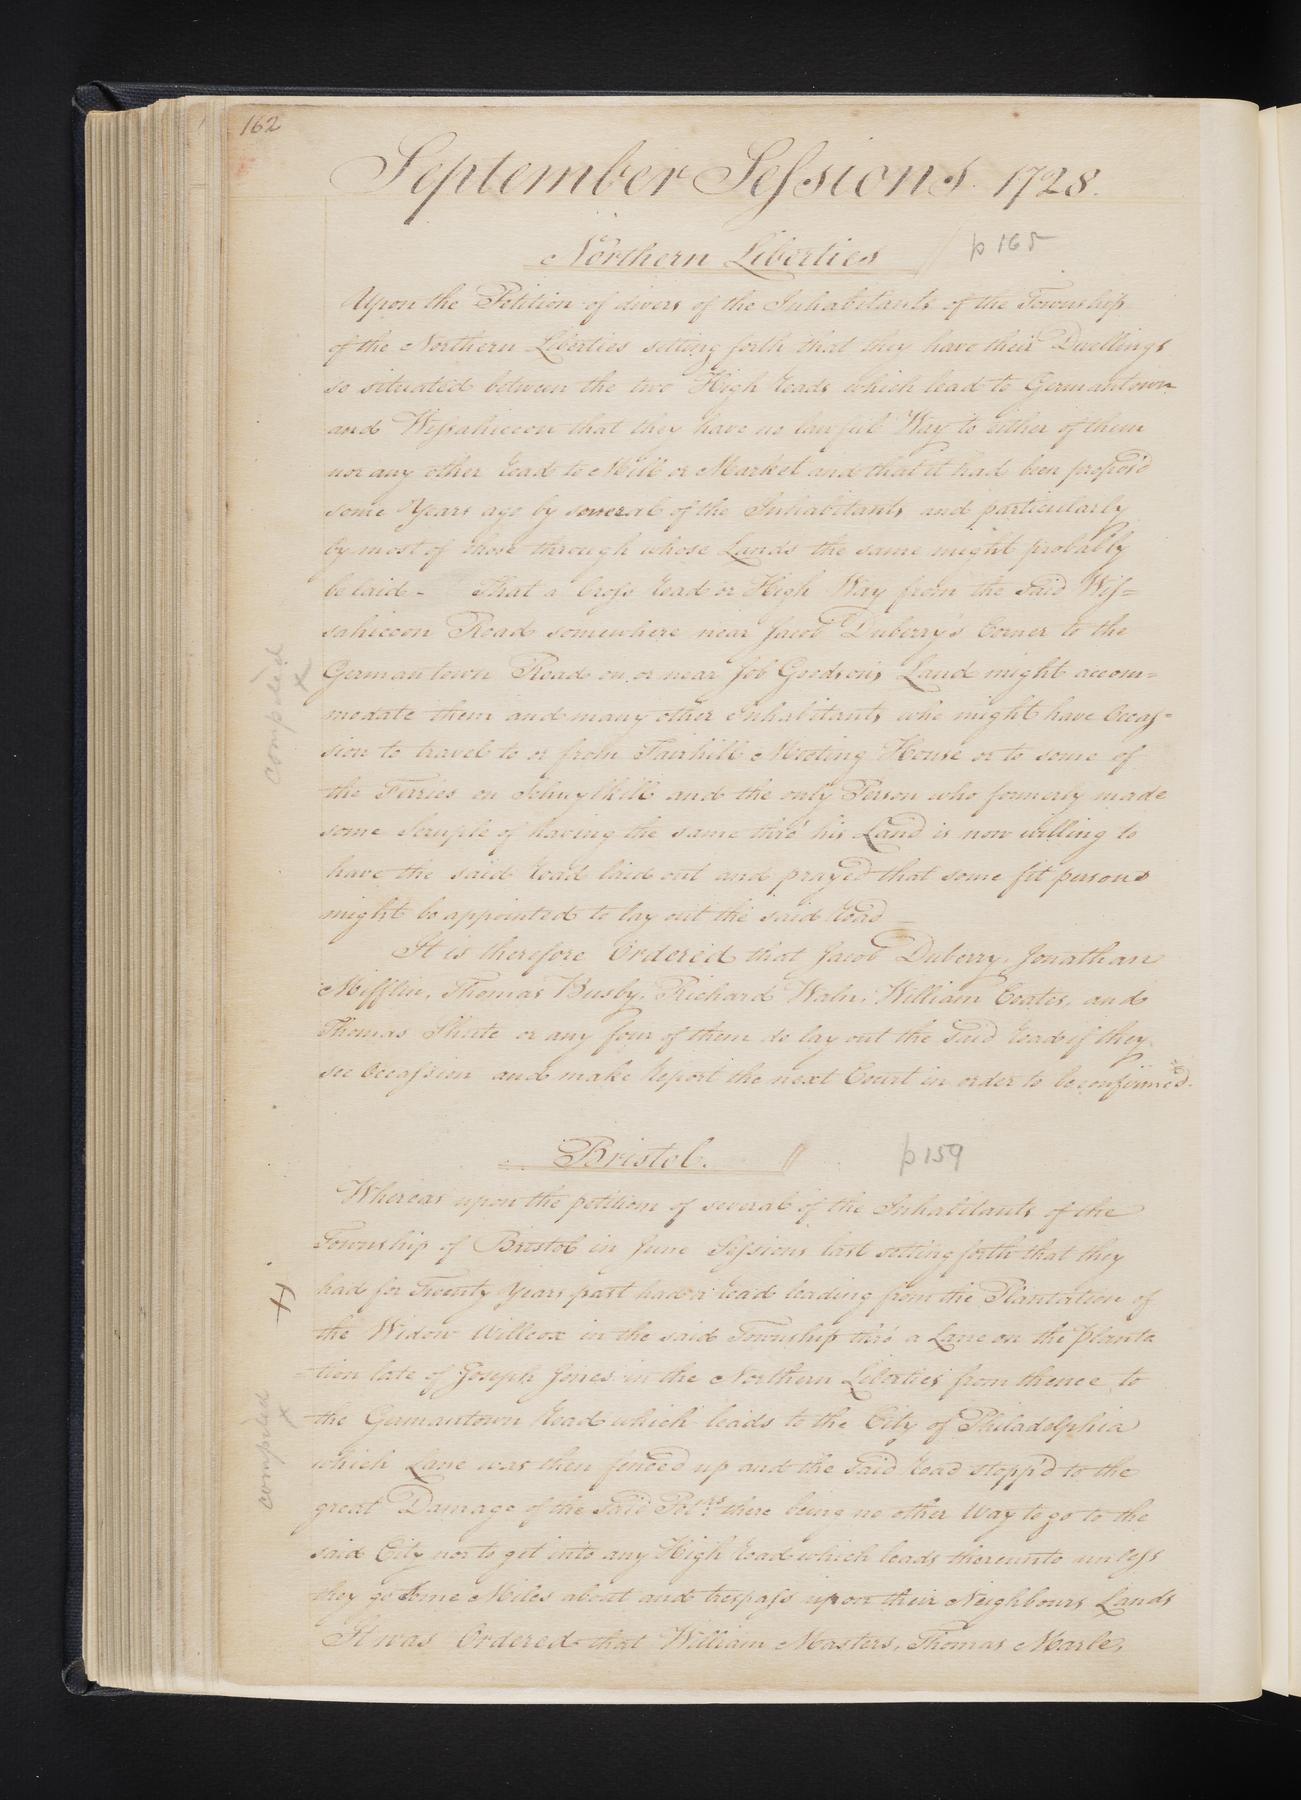 162
September Sessions 1728.
Northern Liberties // p 165
Upon the Petition of divers of the Inhabitants of the Township
of the Northern Liberties setting forth that they have their Dwellings
so situated between the two High roads which lead to Germantown
and Wissahiccon that they have no lawful Way to either of them
nor any other road to Mill or Market and that it had been propos'd
some Years ago by several of the Inhabitants and particularly
by most of those through whose Lands the same might probably
be laid - That a Cross road or High Way from the said Wis=
sahiccon Road somewhere near Jacob Duberry's Corner to the
Germantown Road on or near Job Goodson's Land might accom=
modate them and many other Inhabitants who might have Occas=
sion to travel to or from Fairhill Meeting House or to some of
the Ferries on Schuylkill and the only Person who formerly made
some Scruple of having the same thro' his Land is now willing to
have the said road laid out and prayed that some fit persons
might be appointed to lay out the said road —
It is therefore Ordered that Jacob Duberry, Jonathan
Mifflin, Thomas Busby, Richard Waln, William Coates, and
Thomas Shute or any four of them do lay out the said road if they
see Occassion and make report the next Court in order to be confirmed.
compared x
Bristol. // p 159
Whereas upon the petition of several of the Inhabitants of the
Township of Bristol in June Sessions last setting forth that they
had for Twenty Years past had a road leading from the Plantation of
the Widow Willcox in the said Township thro' a Lane on the planta
=tion late of Joseph Jones in the Northern Liberties from thence to
the Germantown road which leads to the City of Philadelphia
which Lane was then fenced up and the said road stopp'd to the
great Damage of the said Petrs there being no other Way to go to the
said City nor to get into any High road which leads thereunto unless
they go some Miles about and trespass upon their Neighbours Lands
It was Ordered that William Masters, Thomas Marle,
compared x